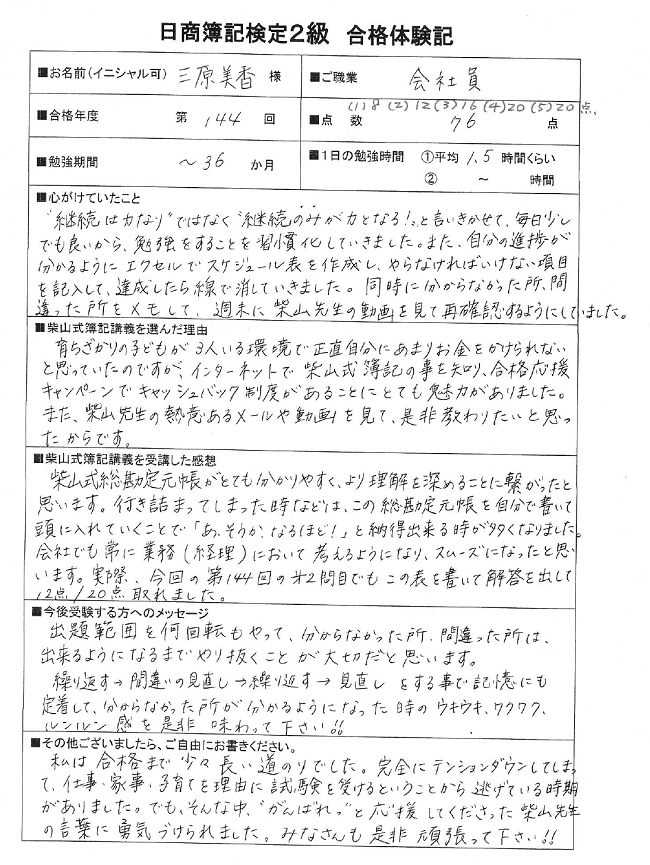 日商簿記検定2級 合格体験記
■お名前(イニシャル可) 三原美香 様
■ご職業 会社員
■合格年度 第 144 回
(1)8 (2)12 (3)16 (4)20 (5)20点
■点 数 76 点
■勉強期間 ～36 か月
■1日の勉強時間 ①平均 1.5 時間くらい
② ～ 時間
■心がけていたこと
"継続は力なり"ではなく"継続のみが力となる!"と言いきかせて、毎日少し
でも良いから、勉強をすることを習慣化していきました。また、自分の進捗が
分かるようにエクセルでスケジュール表を作成し、やらなければいけない項目
を記入して、達成したら線で消していきました。同時に分からなかった所、間
違った所をメモして、週末に柴山先生の動画を見て再確認するようにしていました。
■柴山式簿記講義を選んだ理由
育ちざかりの子どもが3人いる環境で正直自分にあまりお金をかけられない
と思っていたのですが、インターネットで柴山式簿記の事を知り、合格応援
キャンペーンでキャッシュバック制度があることにとても魅力がありました。
また、柴山先生の熱意あるメールや動画を見て、是非教わりたいと思っ
たからです。
■柴山式簿記講義を受講した感想
柴山式総勘定元帳がとても分かりやすく、より理解を深めることに繋がったと
思います。行き詰まってしまった時などは、この総勘定元帳を自分で書いて
頭に入れていくことで「あ、そうか、なるほど!」と納得出来る時が多くなりました。
会社でも常に業務(経理)において考えるようになり、スムーズになったと思
います。実際、今回の第144回の第2問目でもこの表を書いて解答を出して
12点/20点 取れました。
■今後受験する方へのメッセージ
出題範囲を何回転もやって、分からなかった所、間違った所は、
出来るようになるまでやり抜くことが大切だと思います。
繰り返す→間違いの見直し→繰り返す→見直し をする事で記憶にも
定着して、分からなかった所が分かるようになった時のウキウキ、ワクワク、
ルンルン感を是非 味わって下さい!!
■その他ございましたら、ご自由にお書きください。
私は合格まで少々長い道のりでした。完全にテンションダウンしてしまっ
て、仕事・家事・子育てを理由に試験を受けるということから逃げている時期
がありました。でも、そんな中、"がんばれっ"と応援してくださった柴山先生
の言葉に勇気づけられました。みなさんも是非頑張って下さい!!